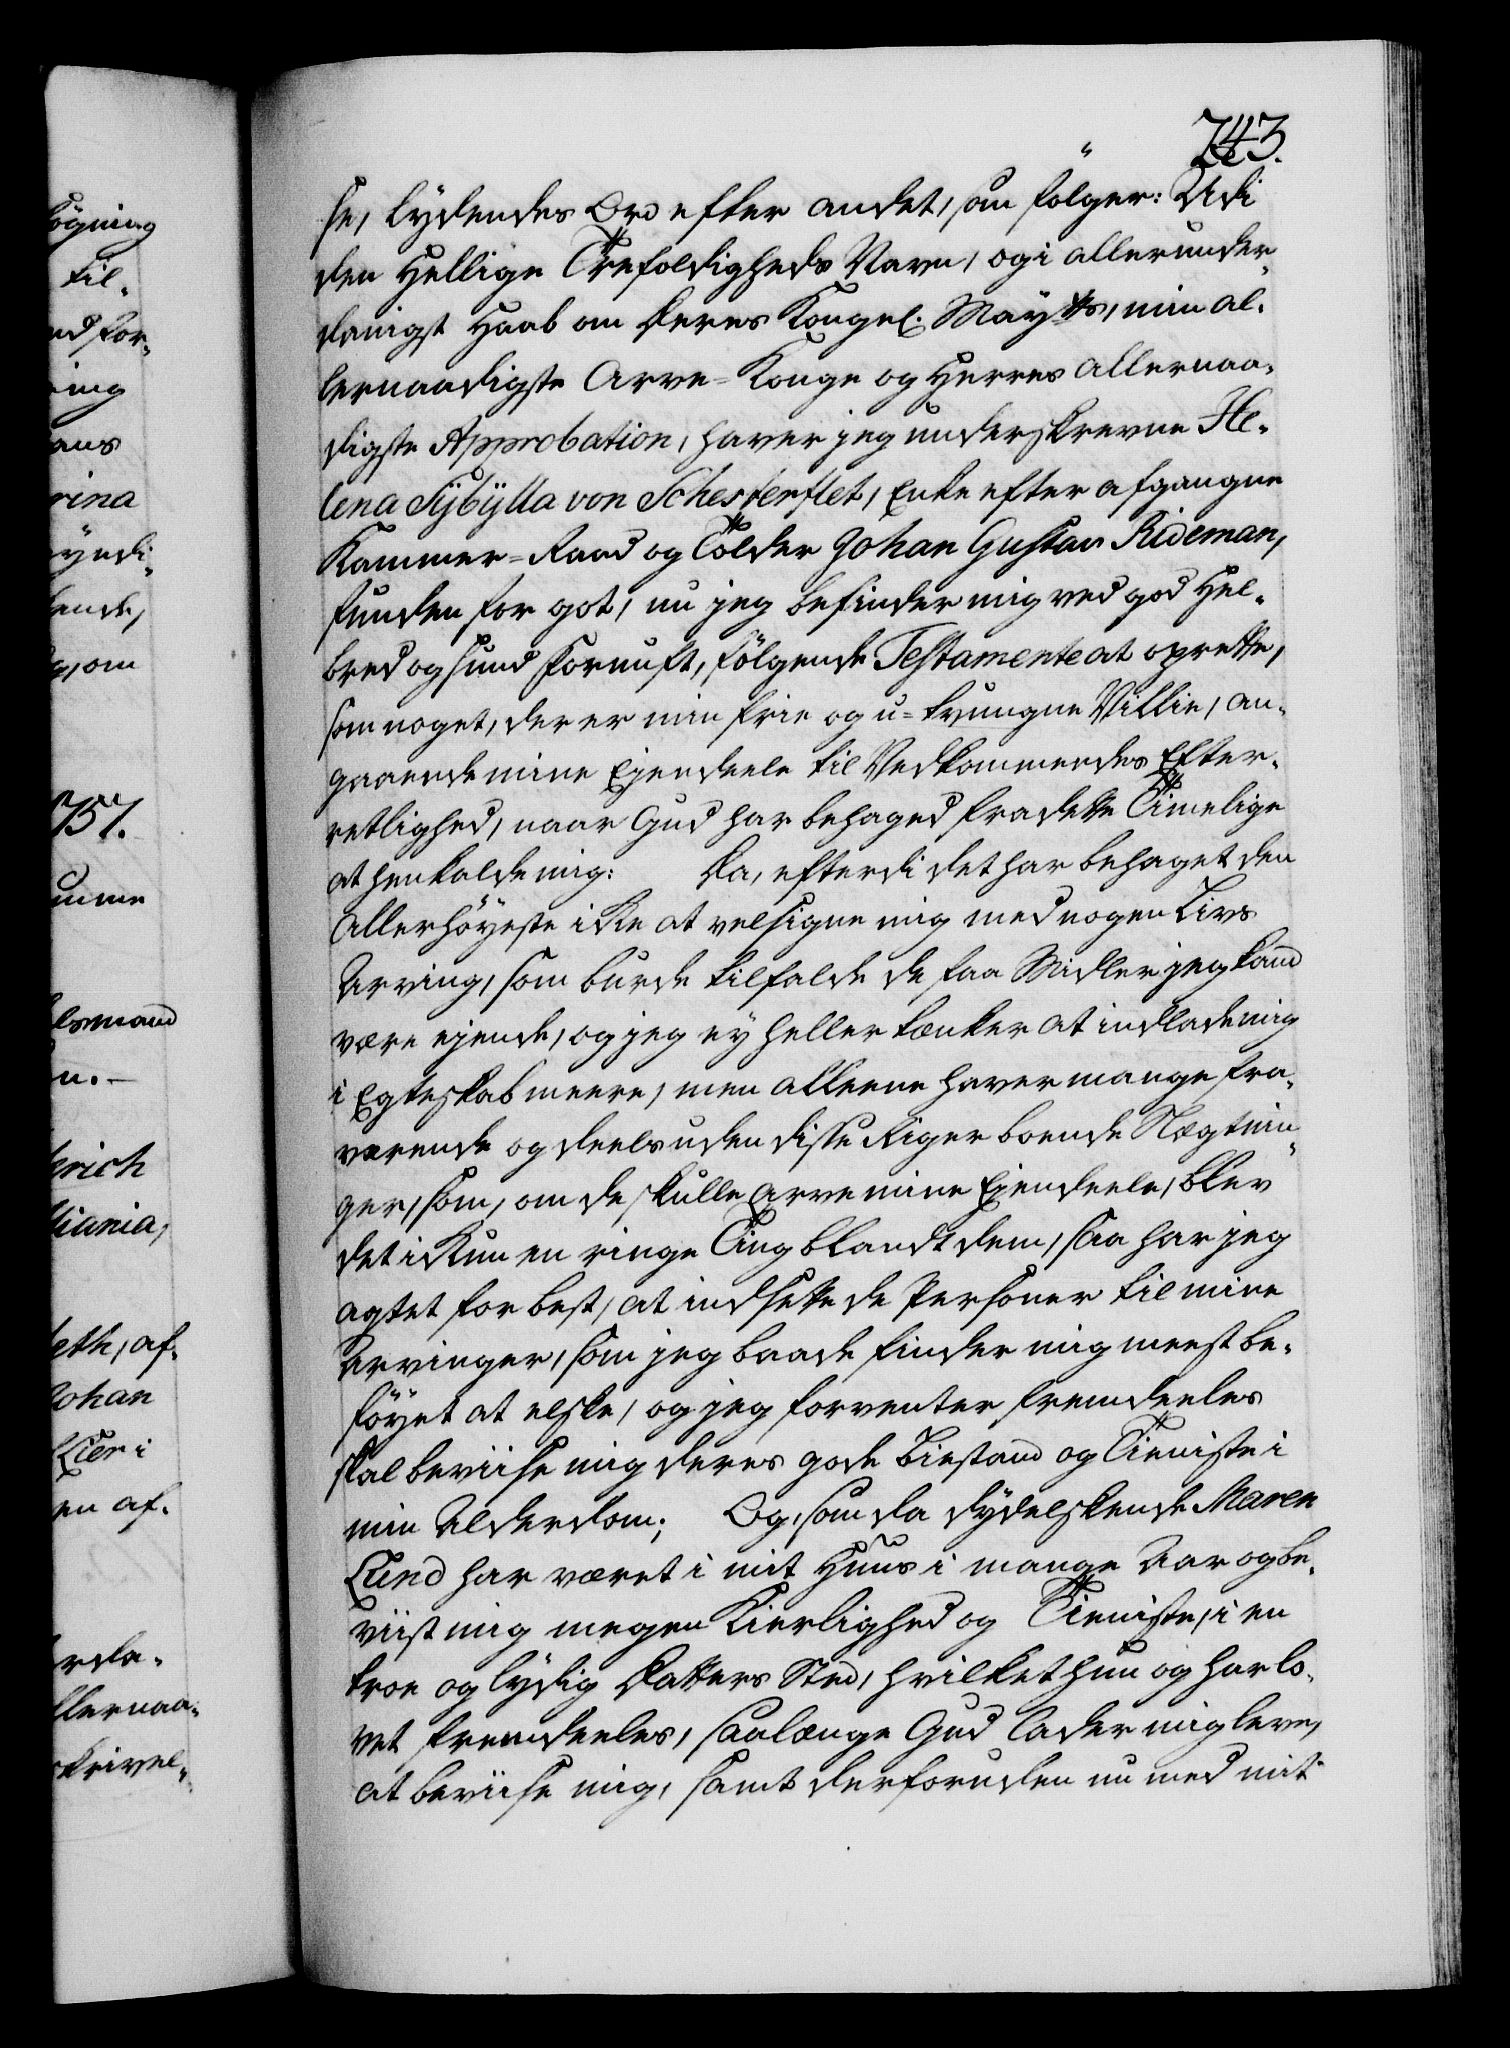 743.
se, lydendes Ord efter andet, som følger: Udi
den Hellige Trefoldigheds Navn, og i allerunder-
danigst Haab om Deres Kongel. Mayts, min al-
lernaadigste Arve-Konge og Herres allernaa-
digste Approbation, haver jeg underskrevne He-
lena Sÿbÿlla von Schesterflet, Enke efter afgangne
Kammer-Raad og Tolder Johan Gustav Rideman,
funden for got, nu jeg befinder mig ved god Hel-
bred og sund Fornuft, følgende Testamente at oprette,
som noget, der er min frie og u-tvungne Villie, an-
gaaende mine Ejendeele til Vedkommendes Efter-
retlighed, naar Gud har behaged fra dette Timelige
at henkalde mig: Da, efterdi det har behaget den
Allerhöyeste ikke at velsigne mig med nogen Livs
Arving, som burde tilfalde de faa Midler jeg kand
være ejende, og jeg ey heller tænker at indlade mig
i Egteskab meere, men alleene haver mange fra-
værende og deels uden disse Riger boende Slægtnin-
ger, som, om de skulle arve mine Ejendeele, blev
det ikkun en ringe Ting blandt dem, saa har jeg
agtet for best, at indsette de Personer til mine
Arvinger, som jeg baade finder mig meest be-
föyet at elske, og jeg forventer fremdeeles
skal beviise mig deres gode Biestand og Tieniste i
min Alderdom; Og, som da dydelskende Maren
Lund har været i mit Huus i mange Aar og be-
viist mig megen Kierlighed og Tieniste, i en
troe og lydig Datters Sted, hvilket hun og har lo-
vet fremdeeles, saalænge Gud lader mig leve,
at beviise mig, samt derforuden nu med mit
øgning
til-
nd for-
ning
ans
rina
yndi-
ende,
g, om
757.
umme
lsmand
n.-
erich
tiania,
eth, af-
Johan
Lier i
en af-
rda-
llernaa-
skrivel-